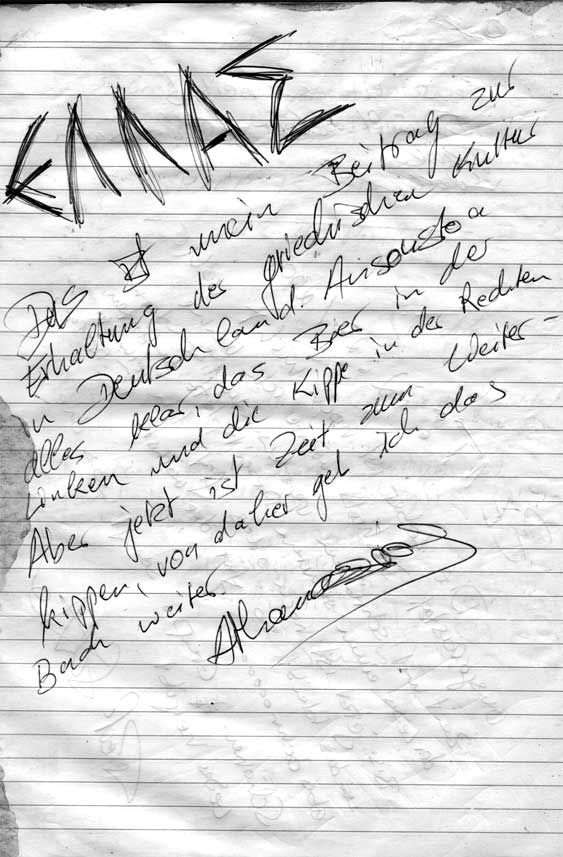 ΕΛΛΑΣ
Das ist mein Beitrag zur
Erhaltung der griechischen Kultur
in Deutschland. Ansonsten
alles klar, das Bier in der
Linken und die Kippe in der Rechten
Aber jetzt ist Zeit zum Weiter-
kippen, von daher geb ich das
Buch weiter.
Athanasios